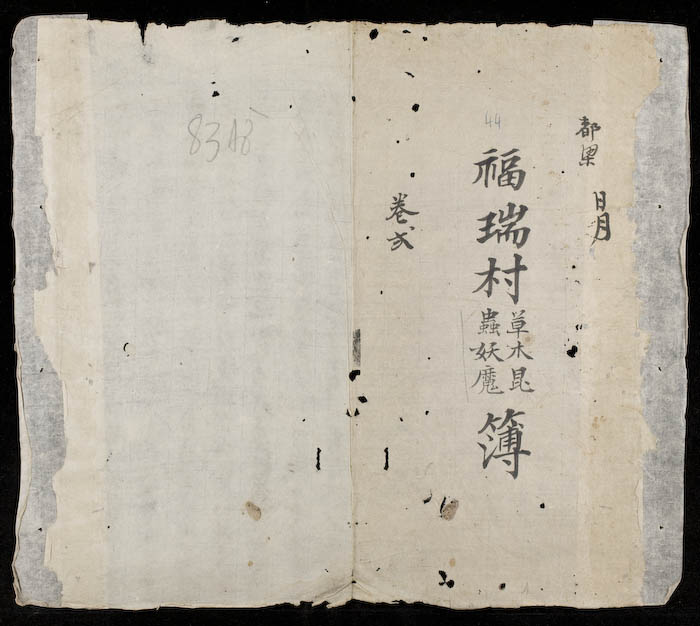 都梁 日月
44
福瑞村
草木昆
蟲妖魔
簿
卷弍